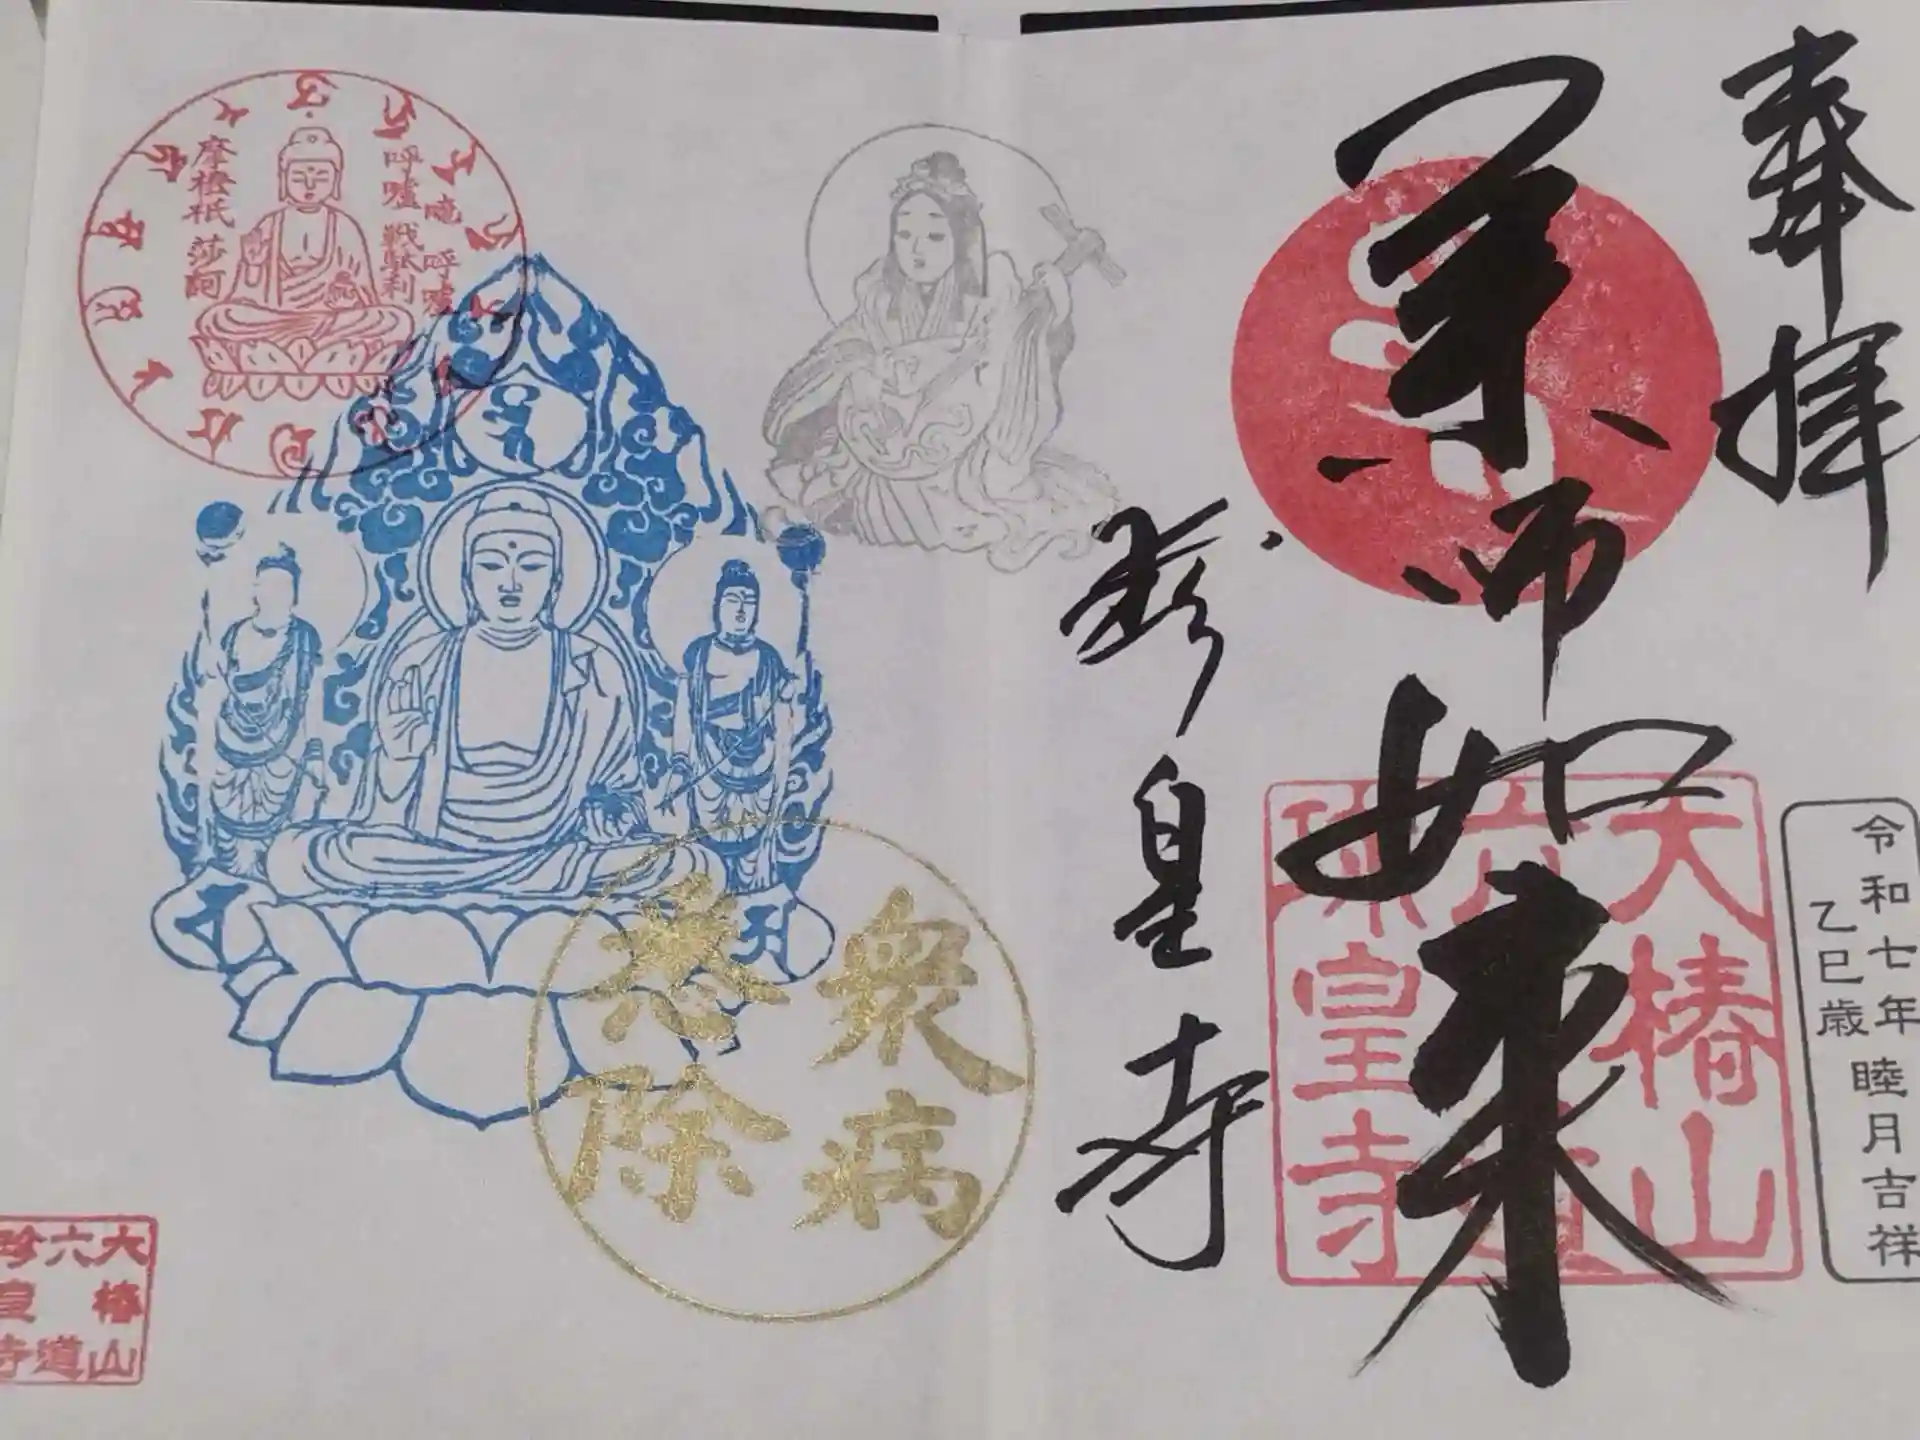 奉拝
薬師如来
珍皇寺
大椿山
六道
珍皇寺
令和七年 睦月吉祥
乙巳歳
衆病
悉除
唵 呼嚧
呼嚧 戦駄利
摩橙祇 莎訶
大椿山
六道
珍皇寺